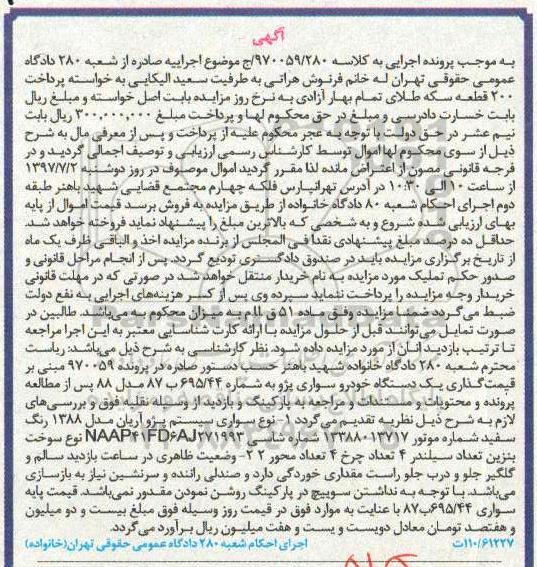 آگهی
به موجب پرونده اجرایی به کلاسه ۹۷۰۰۵۹/۲۸۰/ج موضوع اجراییه صادره از شعبه ۲۸۰ دادگاه
عمومی حقوقی تهران له خانم فرنوش هراتی به طرفیت سعید الیکایی به خواسته پرداخت
۲۰۰ قطعه سکه طلای تمام بهار آزادی به نرخ روز مزایده بابت اصل خواسته و مبلغ ریال
بابت خسارت دادرسی و مبلغ در حق محکوم لها و پرداخت مبلغ ۳۰۰,۰۰۰,۰۰۰ ریال بابت
نیم عشر در حق دولت با توجه به عجز محکوم علیه از پرداخت و پس از معرفی مال به شرح
ذیل از سوی محکوم لها اموال توسط کارشناس رسمی ارزیابی و توصیف اجمالی گردید و در
فرجه قانونی مصون از اعتراض مانده لذا مقرر گردید اموال موصوف در روز دوشنبه ۱۳۹۷/۷/۲
از ساعت ۱۰ الی ۱۰:۳۰ در آدرس تهرانپارس فلکه چهارم مجتمع قضایی شهید باهنر طبقه
دوم اجرای احکام شعبه ۸۰ دادگاه خانواده از طریق مزایده به فروش برسد قیمت اموال از پایه
بهای ارزیابی شده شروع و به شخصی که بالاترین مبلغ را پیشنهاد نماید فروخته خواهد شد.
حداقل ده درصد مبلغ پیشنهادی نقدا فی المجلس از برنده مزایده اخذ و الباقی ظرف یک ماه
از تاریخ برگزاری مزایده باید در صندوق دادگستری تودیع گردد. پس از انجام مراحل قانونی و
صدور حکم تملیک مورد مزایده به نام خریدار منتقل خواهد شد در صورتی که در مهلت قانونی
خریدار وجه مزایده را پرداخت ننماید سپرده وی پس از کسر هزینه‌های اجرایی به نفع دولت
ضبط می‌گردد ضمنا مزایده وفق ماده ۵۱ ق.ا.ا.م به میزان محکوم به می‌باشد. طالبین در
صورت تمایل می‌توانند قبل از حلول مزایده با ارائه کارت شناسایی معتبر به این اجرا مراجعه
تا ترتیب بازدید آنان از مورد مزایده داده شود. نظر کارشناسی به شرح ذیل می‌باشد: ریاست
محترم شعبه ۲۸۰ دادگاه خانواده شهید باهنر حسب دستور صادره در پرونده ۹۷۰۰۵۹ مبنی بر
قیمت‌گذاری یک دستگاه خودرو سواری پژو به شماره ۶۹۵/۴۴ ب ۸۷ مدل ۸۸ پس از مطالعه
پرونده و محتویات و مستندات و مراجعه به پارکینگ و بازدید از وسیله نقلیه فوق و بررسی‌های
لازم به شرح ذیل نظریه تقدیم می‌گردد ۱- نوع سواری سیستم پژو آریان مدل ۱۳۸۸ رنگ
سفید شماره موتور ۱۳۳۸۸۰۱۳۷۱۷ شماره شاسی NAAP۴۱FD۶AJ۲۱۱۹۹۳ نوع سوخت
بنزین تعداد سیلندر ۴ تعداد چرخ ۴ تعداد محور ۲ ۲- وضعیت ظاهری در ساعت بازدید سالم و
گلگیر جلو و درب جلو راست مقداری خوردگی دارد و صندلی راننده و سرنشین نیاز به بازسازی
می‌باشد. با توجه به نداشتن سوییچ در پارکینگ روشن نمودن مقدور نمی‌باشد. قیمت پایه
سواری ۶۹۵/۴۴ب۸۷ با عنایت به موارد فوق در قیمت روز وسیله فوق مبلغ بیست و دو میلیون
و هفتصد تومان معادل دویست و بیست و هفت میلیون ریال برآورد می‌گردد.
۱۱۰/۶۱۲۲۷ت اجرای احکام شعبه ۲۸۰ دادگاه عمومی حقوقی تهران(خانواده)